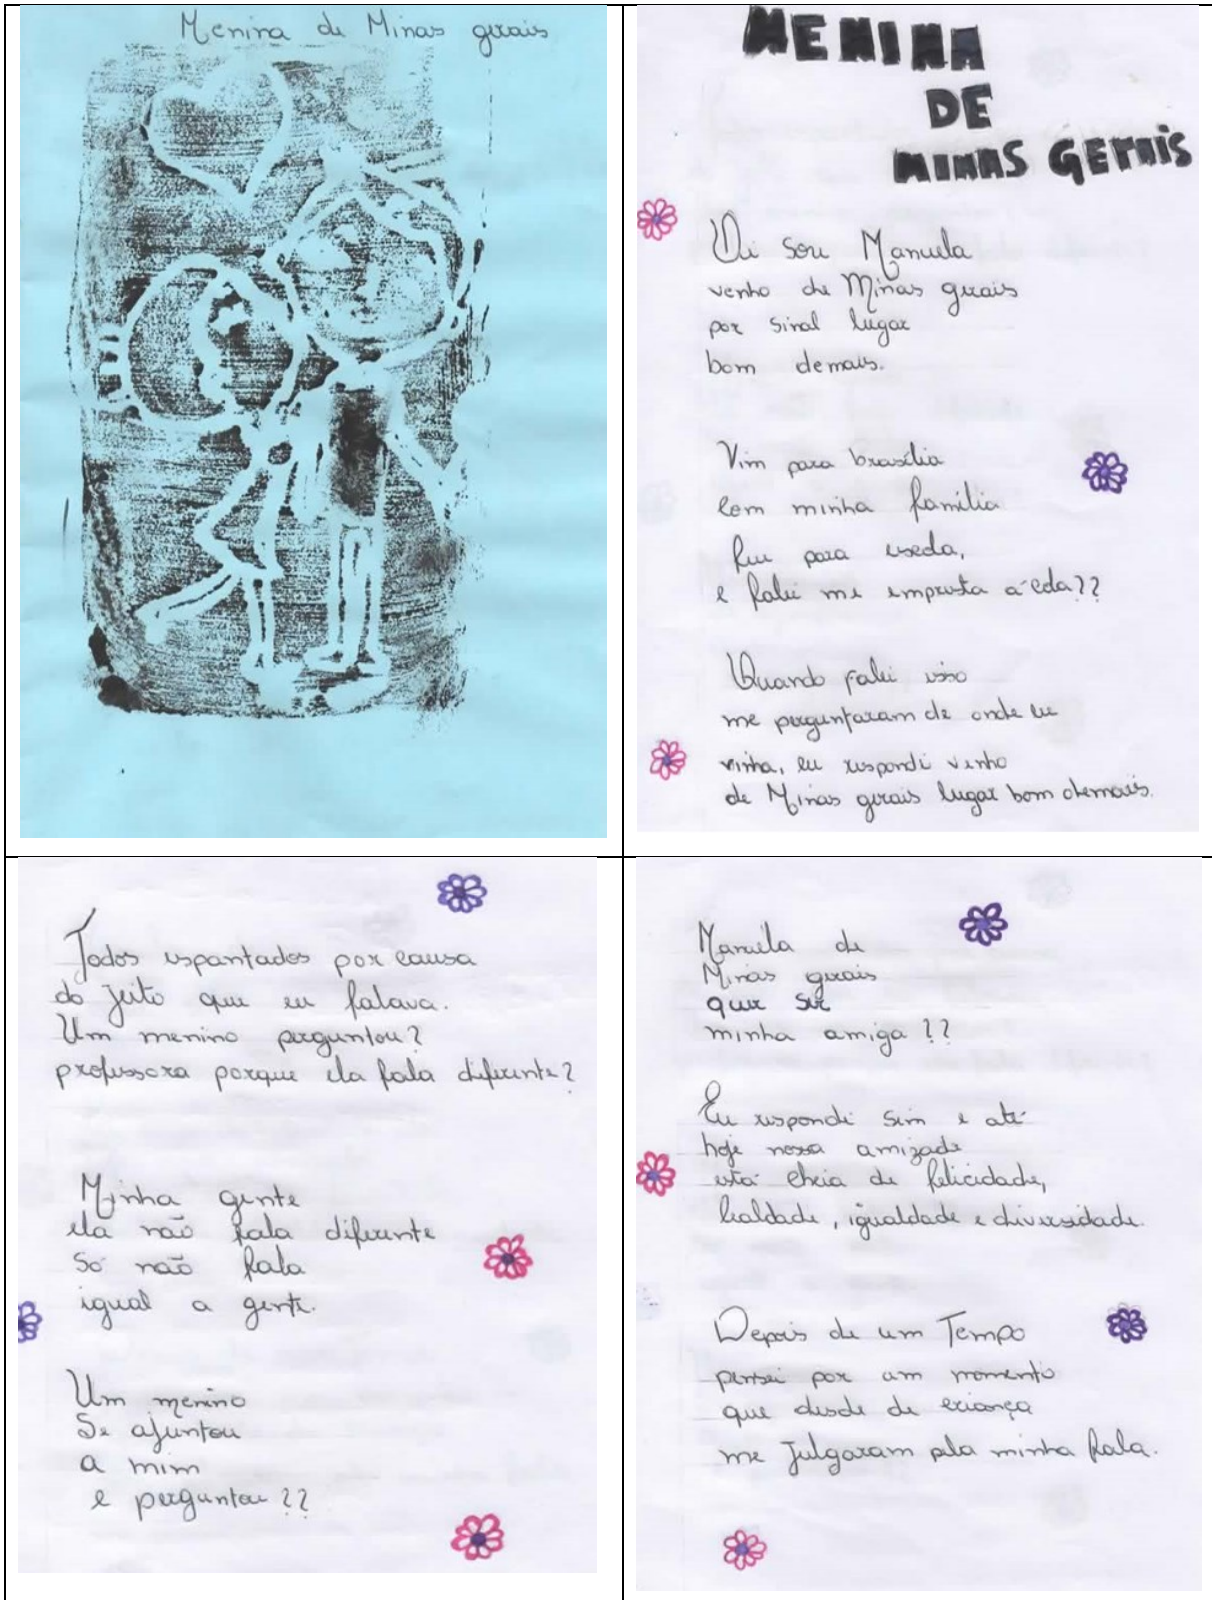 Menina de Minas gerais
MENINA
DE
MINAS GERAIS
Oi sou Manuela
venho de Minas gerais
por sinal lugar
bom demais.
Vim para brasília
com minha família
fui para escola,
e falei me empresta a cola??
Quando falei isso
me perguntaram de onde eu
vinha, eu respondi venho
de Minas gerais lugar bom demais.
Todos espantados por causa
do jeito que eu falava.
Um menino perguntou?
professora porque ela fala diferente?
Minha gente
ela não fala diferente
Só não fala
igual a gente.
Um menino
Se ajuntou
a mim
e perguntou??
Manuela de
Minas gerais
quer ser
minha amiga??
Eu respondi sim e até
hoje nossa amizade
está cheia de felicidade,
lealdade, igualdade e diversidade.
Depois de um Tempo
pensei por um momento
que desde de criança
me julgaram pela minha fala.